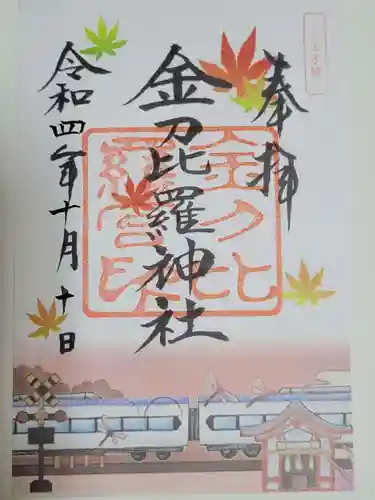 奉拝
金刀比羅神社
令和四年十月十日
金刀比羅宮印